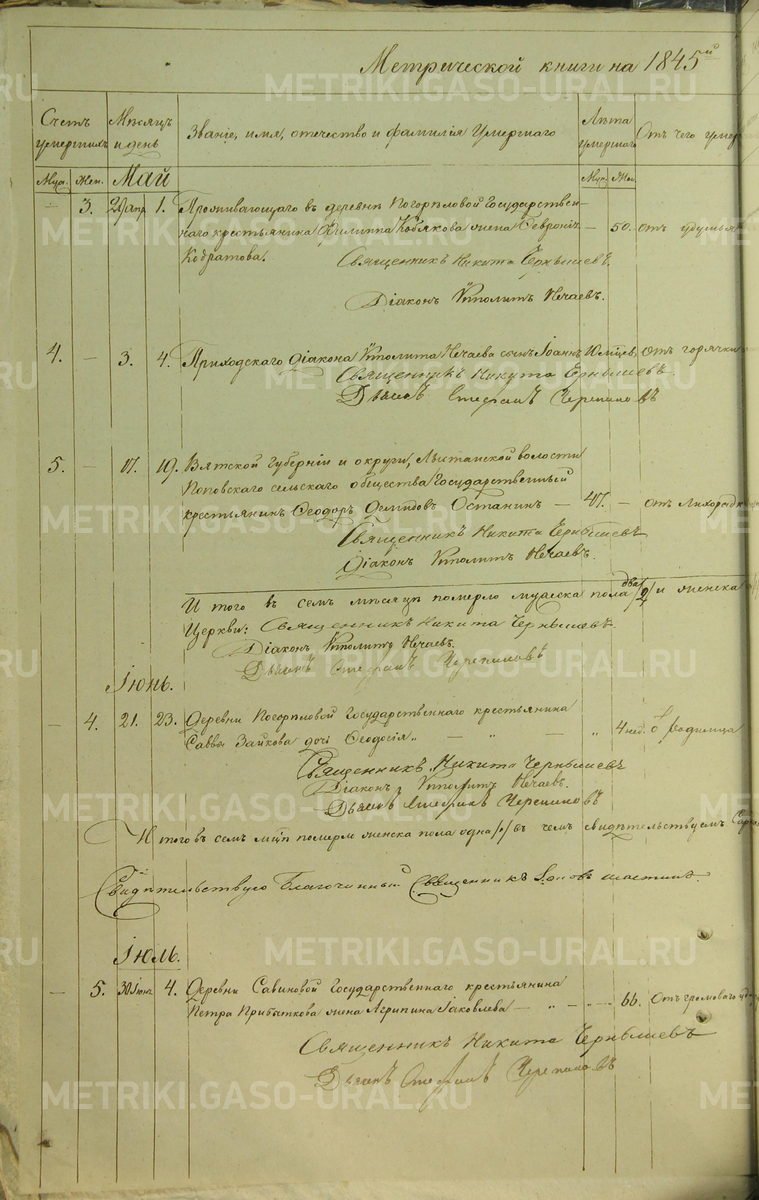 Метрической книги на 1845й
Счетъ умершихъ
Мѣсяцъ и день
Званіе, имя, отечество и фамилія Умершаго
Лѣта умершаго
Отъ чего умер
Муж. Жен.
Май
Муж. Жен.
— 3. 29 апр 1. Проживающаго въ деревнѣ Погорѣловой Государствен-
наго крестьянина Филиппа Кобякова жена Февронія — 50. отъ
Священникъ Никита Чернышевъ.
Діаконъ Ѵпполитъ Нечаевъ.
4. — 3. 4. Приходскаго Діакона Ѵпполита Нечаева сынъ Іоаннъ отъ горячки
Священникъ Никита Чернышевъ.
Дьячекъ Стефанъ Черепановъ
5. — 17. 19. Вятской Губерніи и округи, волости
Поповскаго сельскаго общества Государственный
крестьянинъ Ѳеодоръ Останинъ — 47. — отъ лихорадк
Священникъ Никита Чернышевъ
Діаконъ Ѵпполитъ Нечаевъ.
И того въ семъ мѣсяцѣ померло мужеска пола два /2/ и женска
Церкви: Священникъ Никита Чернышевъ.
Діаконъ Ѵпполитъ Нечаевъ.
Дьячекъ Стефанъ Черепановъ
Іюнь.
— 4. 21. 23. Деревни Погорѣловой Государственнаго крестьянина
Саввы Зайкова дочь Ѳеодосія „ — „ — „ — „ 4 нед. родимца
Священникъ Никита Чернышевъ
Діаконъ Ѵпполитъ Нечаевъ.
Дьячекъ Стефанъ Черепановъ
И того въ семъ мцѣ померла женска пола одна /1/ въ чемъ свидѣтельствуемъ
Свидѣтельствую Благочинный Священникъ
Іюль.
— 5. 30 Іюн. 4. Деревни Савиновой Государственнаго крестьянина
Петра Прибыткова жена Агрипина Іаковлева — „ — 66. Отъ громоваго уд
Священникъ Никита Чернышевъ
Дьячекъ Стефанъ Черепановъ
METRIKI.GASO-URAL.RU